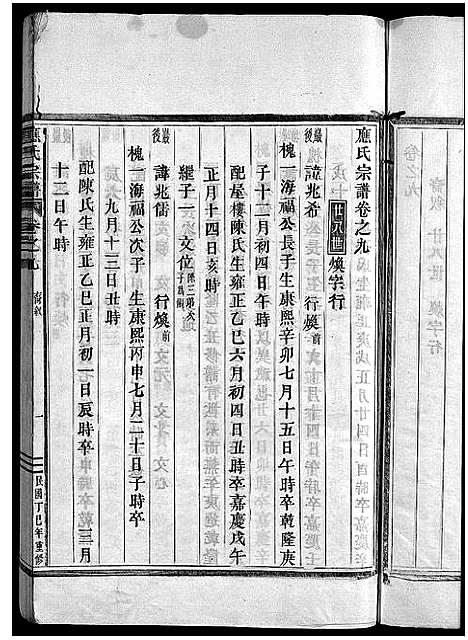 應氏宗譜卷之九
廿八世 煥字行
巖後 諱兆希 行煥前
槐一海福公長子生康熙辛卯七月十五日午時卒乾隆庚
子十二月初四日午時
配屋樓陳氏生雍正乙巳六月初四日丑時卒嘉慶戊午
正月十四日亥時
繼子一 文位
巖後 諱兆儒 行煥前
槐一海福公次子 生康熙丙申七月二十日子時卒
九月十三日丑時
配陳氏生雍正乙巳正月初一日辰時卒 三月
十二日午時
應氏宗譜 卷之九 一 民國丁巳年重修